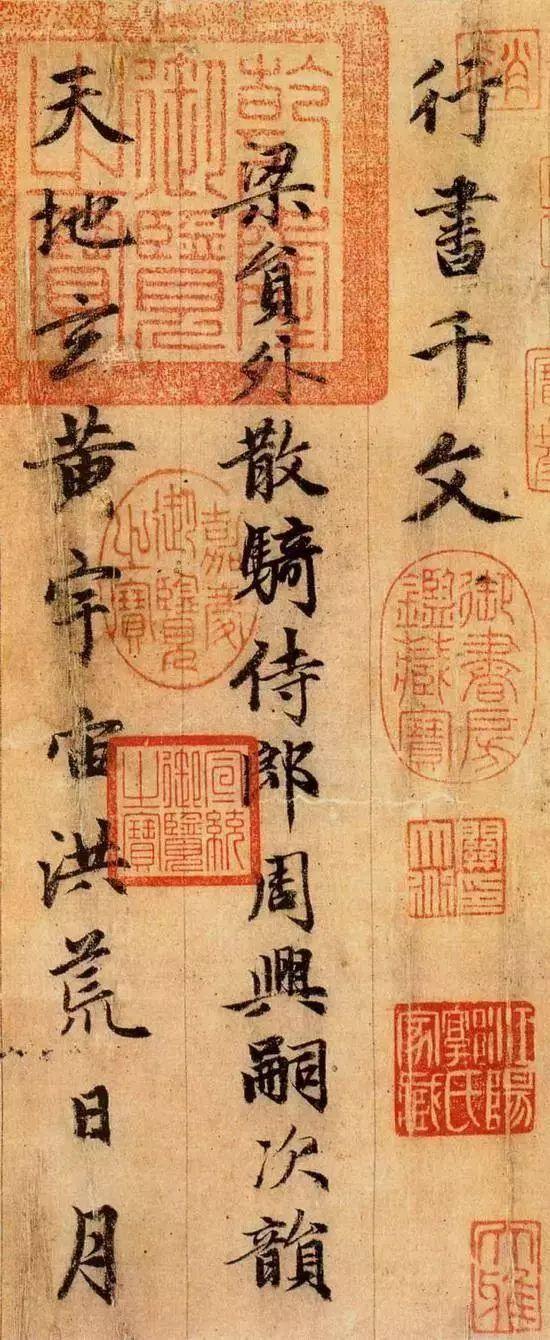 行書千文
御書房鑑藏寶
梁員外散騎侍郎周興嗣次韻
天地玄黄宇宙洪荒日月
乾隆御覽之寶
嘉慶御覽之寶
宣統御覽之寶